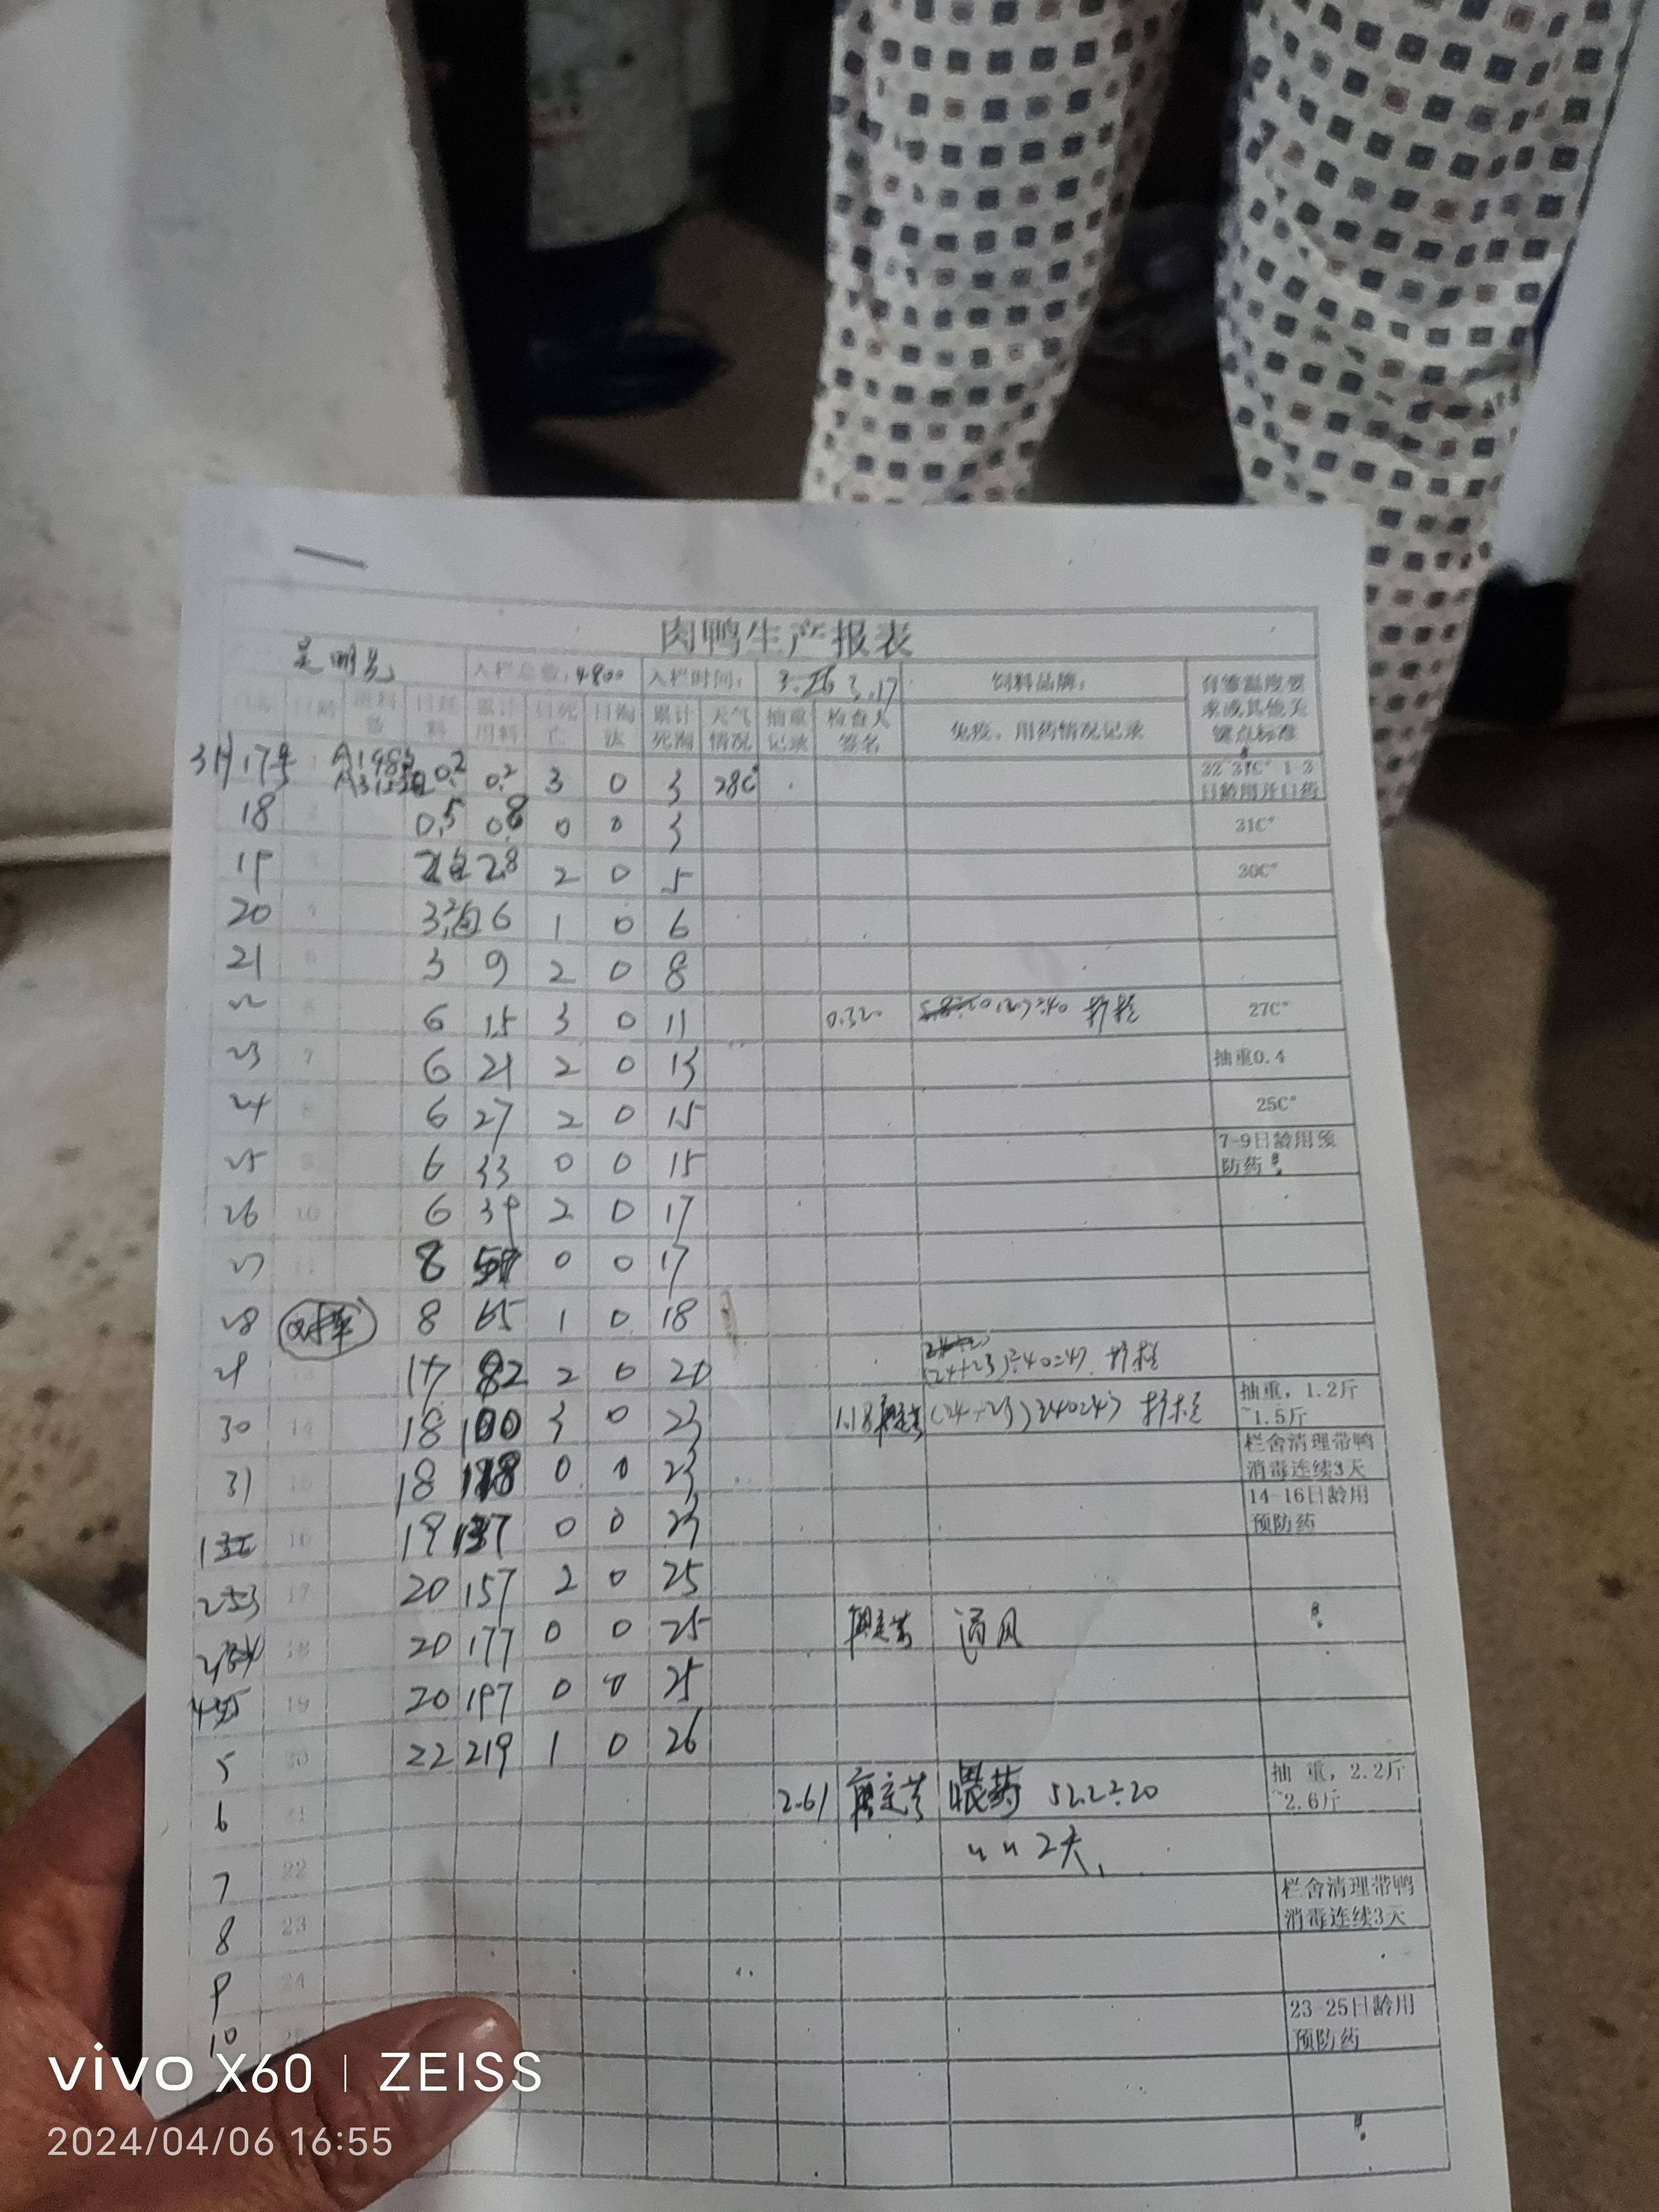 肉鸭生产报表
吴明兄 入栏总数：4800 入栏时间： 3.17 饲料品牌： 育雏温度要求或其他关键点标准
日期 日龄 进料卷 日耗料 累计用料 日死亡 日淘汰 累计死淘 天气情况 抽重记录 检查人签名 免疫、用药情况记录
3月17号 1 0.2 0.2 3 0 3 28C° 32-31C° 1-3日龄用开口药
18 2 0.5 0.8 0 0 3 31C°
19 3 2包 2.8 2 0 5 30C°
20 4 3.2包 6 1 0 6
21 5 3 9 2 0 8
22 6 6 15 3 0 11 0.32 27C°
23 7 6 21 2 0 13 抽重0.4
24 8 6 27 2 0 15 25C°
25 9 6 33 0 0 15 7-9日龄用预防药
26 10 6 39 2 0 17
27 11 8 57 0 0 17
28 8 65 1 0 18
29 13 17 82 2 0 20 (24+23)÷40=47
30 14 18 100 3 0 23 1.18 (24+23) 抽重，1.2斤~1.5斤
31 15 18 118 0 0 23 栏舍清理带鸭消毒连续3天
1 16 19 137 0 0 23 14-16日龄用预防药
17 20 157 2 0 25
18 20 177 0 0 25 通风
19 20 197 0 0 25
5 20 22 219 1 0 26
6 21 2.61 喂药 52.2÷20 抽 重，2.2斤~2.6斤
7 22 〃 〃 2天
8 23 栏舍清理带鸭消毒连续3天
9 24
10 25 23-25日龄用预防药
vivo X60 | ZEISS
2024/04/06 16:55